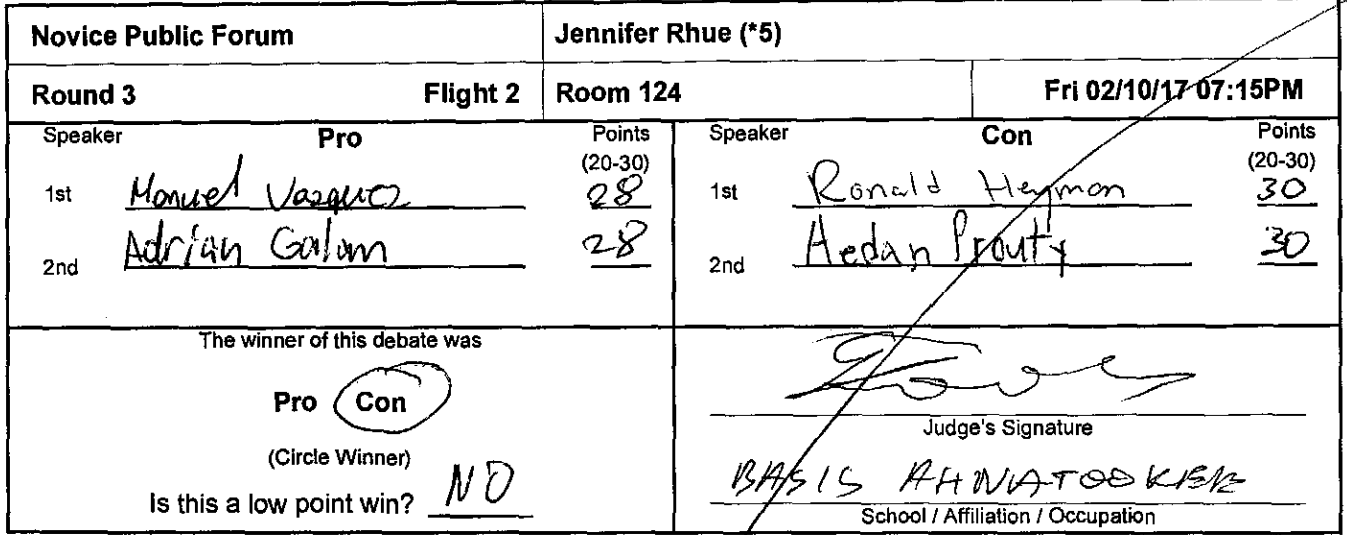 Novice Public Forum Jennifer Rhue (*5)
Round 3 Flight 2 Room 124 Fri 02/10/17 07:15PM
Speaker Pro Points (20-30)
1st Manuel Vazquez 28
2nd Adrian Galam 28
Speaker Con Points (20-30)
1st Ronald Heymon 30
2nd Aedan Prouty 30
The winner of this debate was
Pro Con
(Circle Winner)
Is this a low point win? NO
Judge's Signature
BASIS
School / Affiliation / Occupation